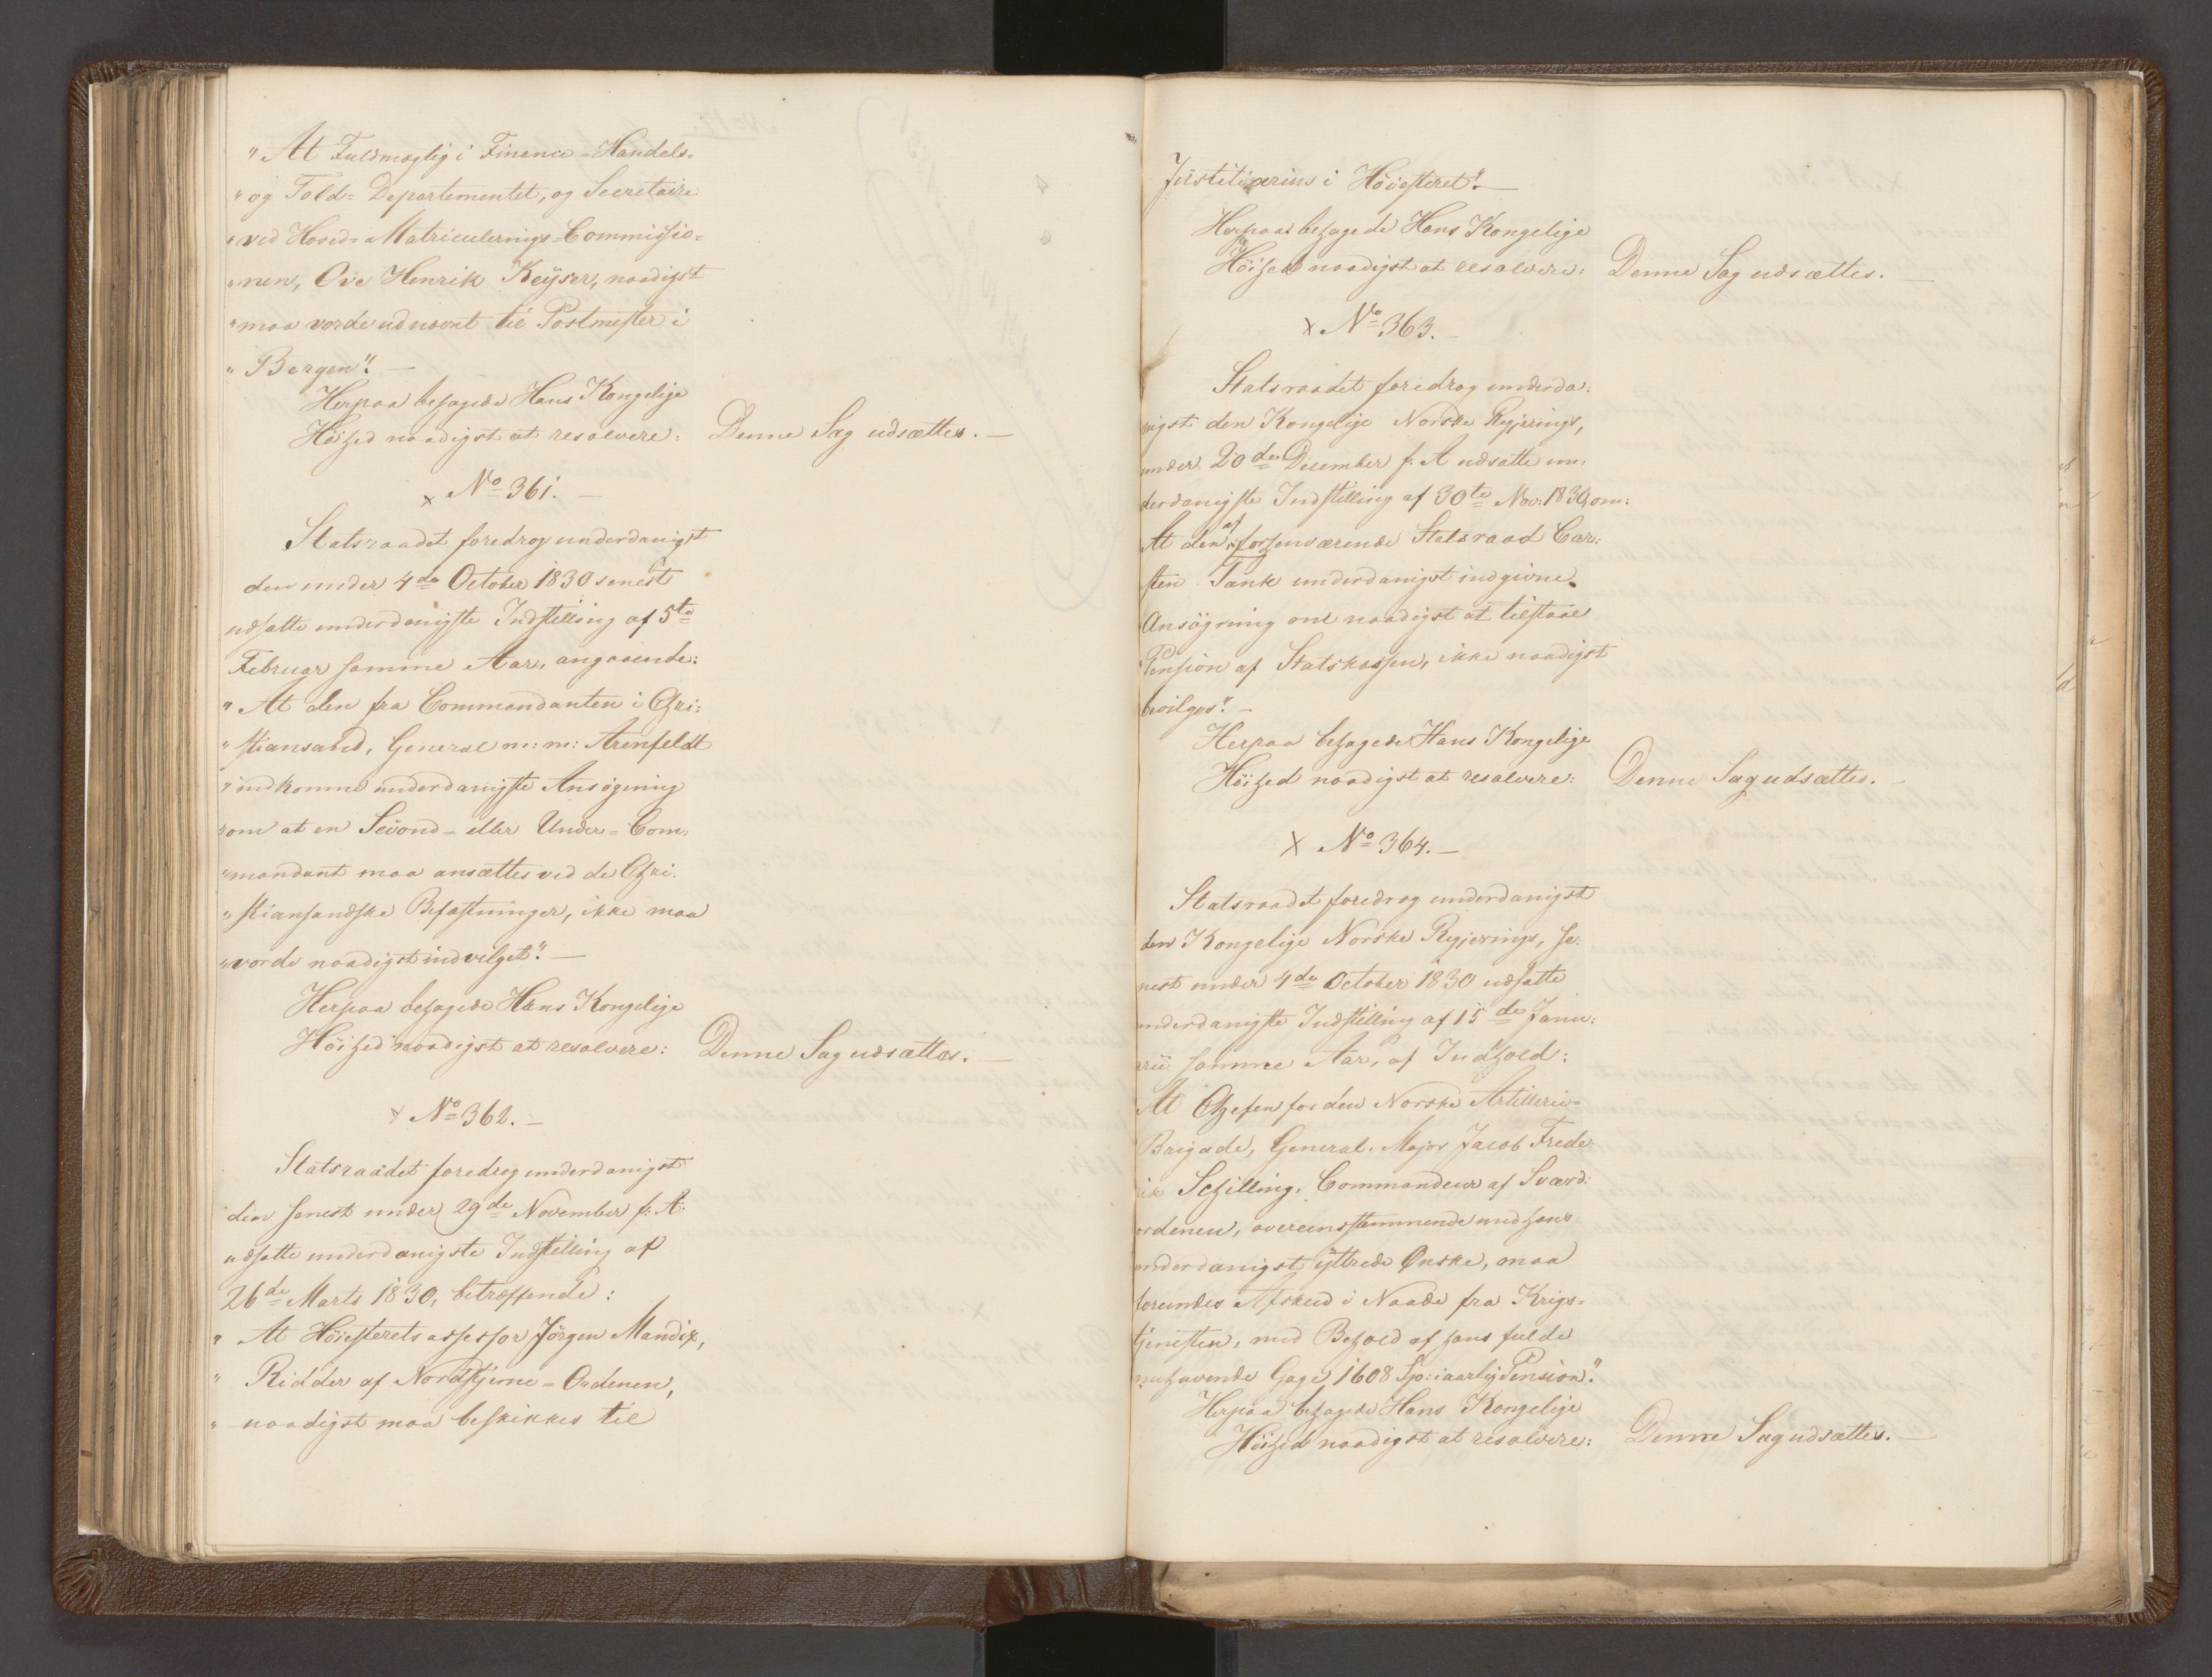 " At Fuldmægtig i Finance-Handels-
" og Told-Departementet, og Secretaire
" ved Hoved-Matriculerings-Commissio-
" nen, Ove Henrik Keÿser, naadigst
" maa vorde udnævnt til Postmester i
" Bergen". —
Herpaa behagede Hans Kongelige
Höihed naadigst at resolvere: Denne Sag udsættes. —
× No 361. —
Statsraadet foredrog underdanigst
den under 4de October 1830 senest
udsatte underdanigste Indstilling af 5te
Februar samme Aar, angaaende:
" At den fra Commandanten i Chri-
" stiansand, General m: m: Arenfeldt
" indkomne underdanigste Ansögning
" om at en Second- eller Under-Com-
" mandant maa ansættes ved de Chri-
" stiansandske Befæstninger, ikke maa
" vorde naadigst indvilget". —
Herpaa behagede Hans Kongelige
Höihed naadigst at resolvere: Denne Sag udsættes. —
× No 362. —
Statsraadet foredrog underdanigst
den senest under 29de November f: A:
udsatte underdanigste Indstilling af
26de Marts 1830, betræffende:
" At Höiesteretsassessor Jörgen Mandix,
" Ridder af Nordstjerne-Ordenen,
" naadigst maa beskikkes til
Justitiarius i Höiesteret". —
Herpaa behagede Hans Kongelige
Höihed naadigst at resolvere: Denne Sag udsættes. —
× No 363. —
Statsraadet foredrog underda-
nigst den Kongelige Norske Regjerings,
under 20de December f: A udsatte un-
derdanigste Indstilling af 30te Nov: 1830, om:
At den af forhenværende Statsraad Car-
sten Tank underdanigst indgivne
Ansögning om naadigst at tilstaaes
Pension af Statskassen, ikke naadigst
bevilges". —
Herpaa behagede Hans Kongelige
Höihed naadigst at resolvere: Denne Sag udsættes. —
× No 364. —
Statsraadet foredrog underdanigst
den Kongelige Norske Regjerings, se-
nest under 4de October 1830 udsatte
underdanigste Indstilling af 15de Janu-
arii samme Aar, af Indhold:
At Chefen for den Norske Artillerie-
Brigade, General-Major Jacob Frede-
rik Schilling, Commandeur af Sværd-
ordenen, overeensstemmende med hans
underdanigst ÿttrede Ønske, maa
forundes Afsked i Naade fra Krigs-
tjenesten, med Behold af hans fulde
nuhavende Gage, 1608 Sp: i aarlig Pension".
Herpaa behagede Hans Kongelige
Höihed naadigst at resolvere: Denne Sag udsættes. —